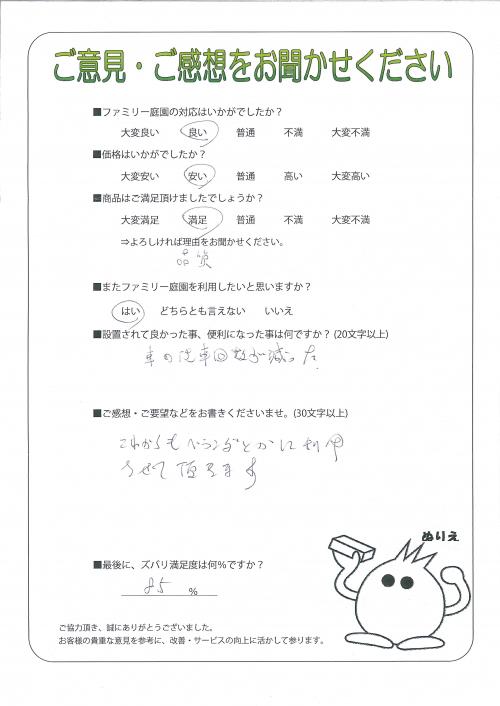 ご意見・ご感想をお聞かせください
■ファミリー庭園の対応はいかがでしたか？
大変良い 良い 普通 不満 大変不満
■価格はいかがでしたか？
大変安い 安い 普通 高い 大変高い
■商品はご満足頂けましたでしょうか？
大変満足 満足 普通 不満 大変不満
⇒よろしければ理由をお聞かせください。
品質
■またファミリー庭園を利用したいと思いますか？
はい どちらとも言えない いいえ
■設置されて良かった事、便利になった事は何ですか？(20文字以上)
車の洗車回数が減った.
■ご感想・ご要望などをお書きくださいませ。(30文字以上)
これからもベランダとかに利用
させて頂きます
ぬりえ
■最後に、ズバリ満足度は何%ですか？
85 %
ご協力頂き、誠にありがとうございました。
お客様の貴重な意見を参考に、改善・サービスの向上に活かして参ります。